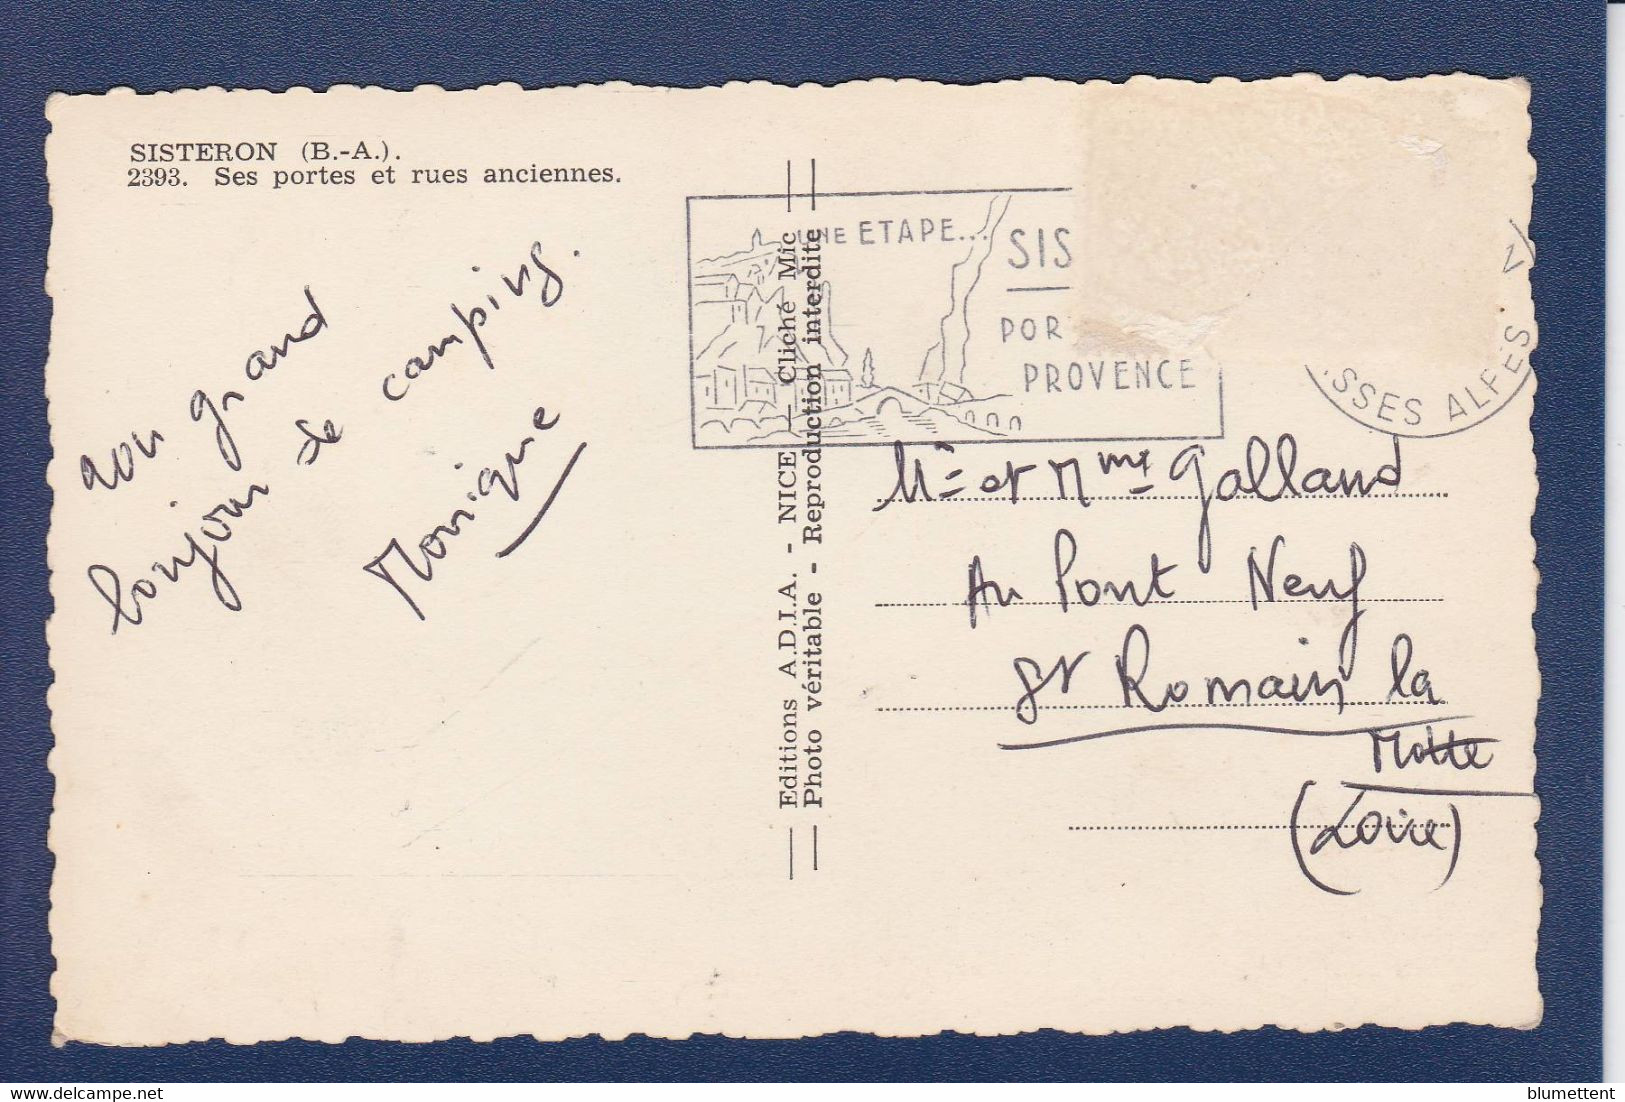 SISTERON (B.-A.).
2393. Ses portes et rues anciennes.
UNE ETAPE...
SIS
POR
PROVENCE
SSES ALPES
grand
bonjour de camping.
Monique
Editions A.D.I.A. - NICE - Cliché Mic
Photo véritable - Reproduction interdite
Mr et Mme Galland
Au Pont Neuf
St Romain la
Motte
(Loire)
blumettent